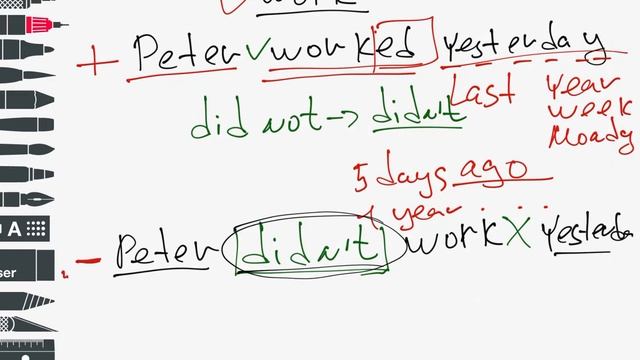 work
+ Peter worked yesterday
did not → didn't
Last year
week
Moady
5 days ago
1 year . . .
- Peter didn't work X yesterda
A
ser